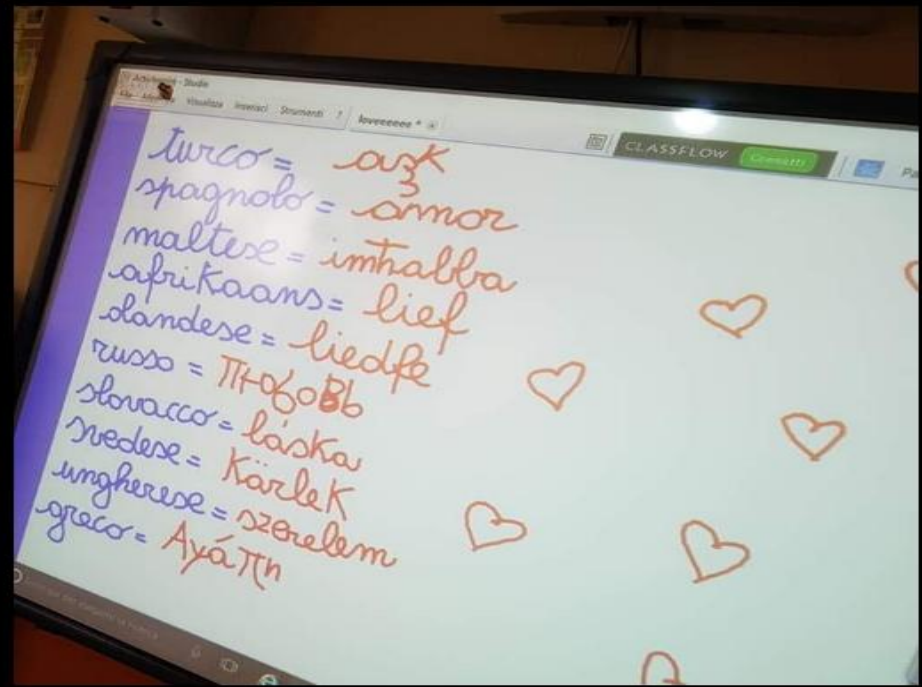 ActivInspire - Studio
File Modifica Visualizza Inserisci Strumenti ?
loveeeeee *
CLASSFLOW Connetti
turco = aşk
spagnolo = amor
maltese = imħabba
afrikaans = lief
olandese = liedfe
russo = Пюбовь
slovacco = láska
svedese = Kärlek
ungherese = szerelem
greco = Αγάπη